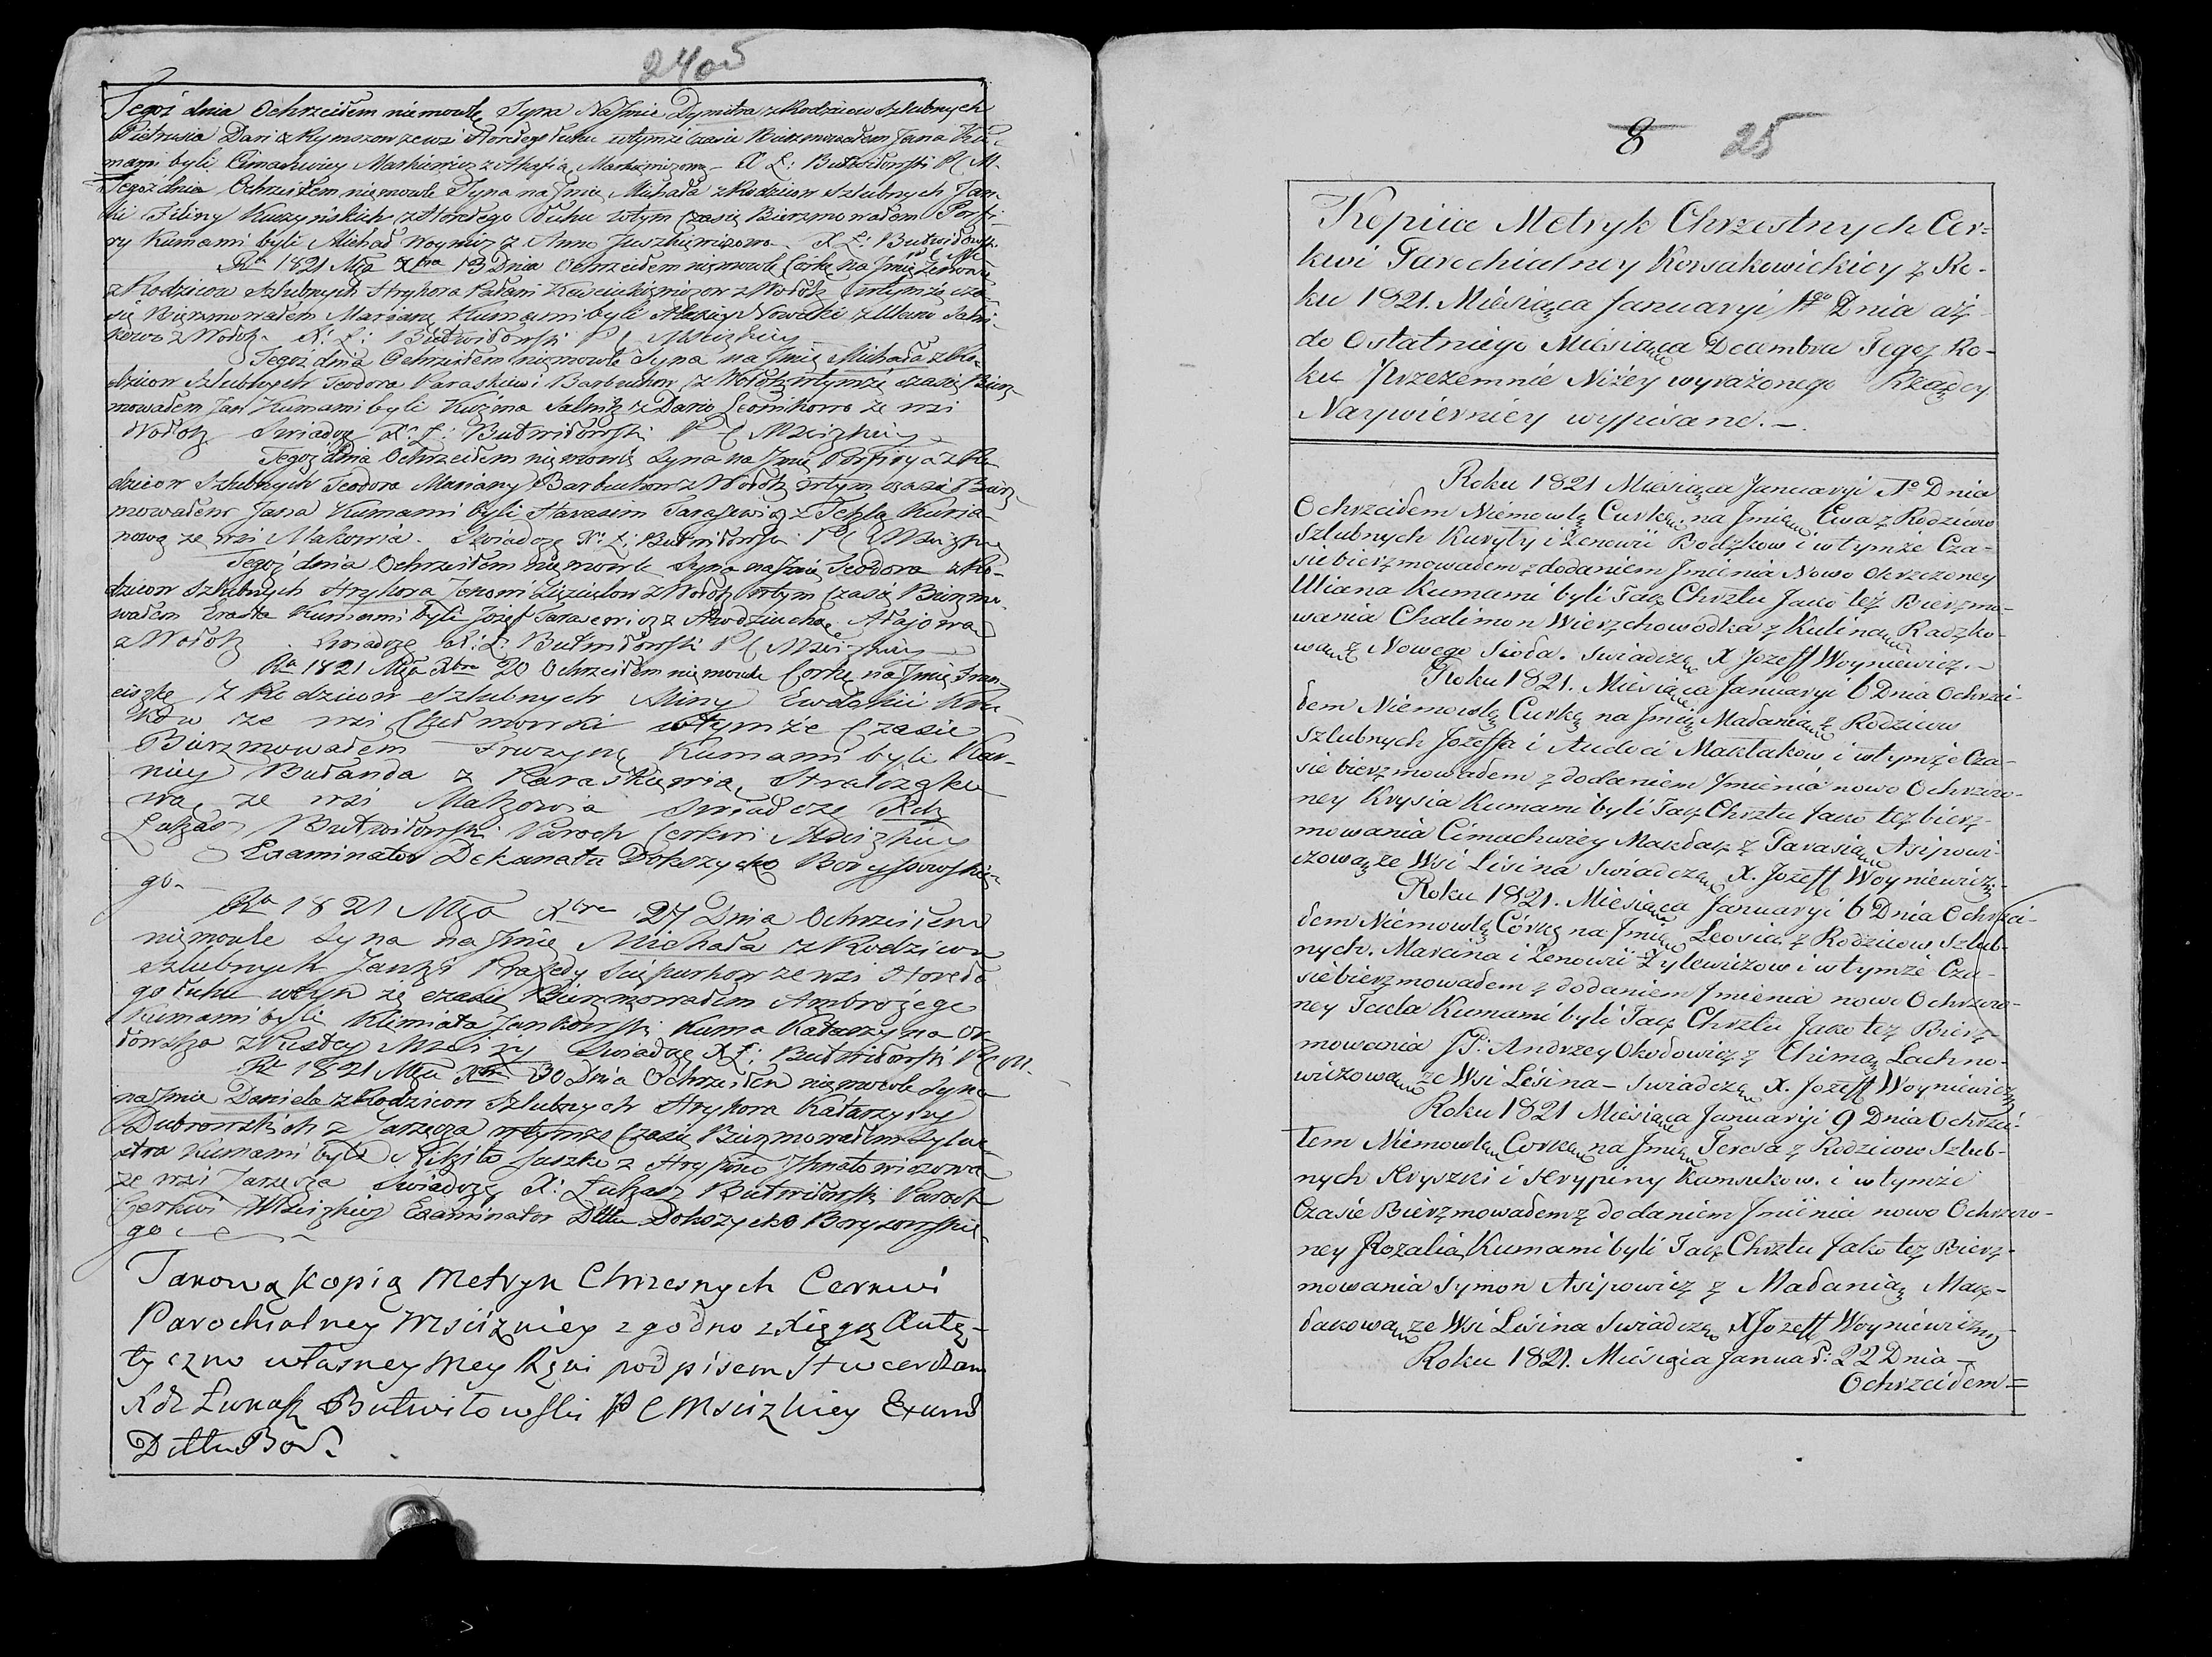 24об
Tegoż dnia Ochrzciłem niemowle Syna Na Jmie Dymitra z Rodzicow Szlubnych
Pietrusia Dari z Rymszow ze wsi Horłego Ługu wtymże Czasie Bierzmowałem Jana Ku-
mami byli Cimachwiey Markiewicz z Ahafią Markiewiczową X Ł: Butwiłowski P C M.
Tegoż dnia Ochrzciłem niemowle Syna na Jmie Michała z Rodzicow Szlubnych Jan-
ki Filiny Kuszyńskich z Horełego Ługu wtym Czasie Bierzmowałem Porfi-
ry Kumami byli Michał Woynicz z Anno Juszkiewiczowo X Ł: Butwiłowski
P C M
Ra 1821 Mca Xbra 13 Dnia Ochrzciłem niemowle Córkę na Jmie Zenowię
z Rodzicow Szlubnych Hryhora Pałani z Wołok wtymże cza-
sie Bierzmowałem Marianę Kumami byli Alexiey Nowocki z Ulano Salni-
kowo z Wołok. X. Ł: Butwiłowski P C Mscizkiey
Tegoż dnia Ochrzciłem niemowle Syna na Jmie Michała z Ro-
dzicow Szlubnych Teodora Paraskiewi Barbuchow z Wołok wtymże czasie Bierz-
mowałem Jan Kumami byli Kuźma Salnik z Dario Leonikowo ze wsi
Wołok Swiadczę X. Ł: Butwiłowski P C Mscizkiey
Tegoż dnia Ochrzciłem niemowle Syna na Jmie Porfirya z Ro
dzicow Szlubnych Teodora Marianny Barbuchow z Wołok wtym czasie Bierz-
mowałem Jana Kumami byli Harasim Tarasewicz z Teklą Kuria-
nową ze wsi Makowia. Swiadczę X. Ł: Butwiłowski P C Mscizkiey
Tegoż dnia Ochrzciłem niemowle Syna na Jmie Teodora z Ro-
dzicow Szlubnych Hryhora z Wołok wtym Czasie Bierzmo-
wałem Erasta Kumami byli Jozef Tarasewicz z
z Wołok Swiadczę X. Ł: Butwiłowski P C Mscizkiey
Ra 1821 Mca Xbra 20 Ochrzciłem niemowle Corkę na Jmie Fran-
ciszkę z Rodzicow Szlubnych Miny Ewdokii
ze wsi wtymże Czasie
Bierzmowałem Kumami byli Kar-
niey Bułanda z Paraskiewią
wą ze wsi Makowia Swiadczę Xdz
Łukasz Butwiłowski Paroch Cerkwi Mscizkiey
Examinator Dekanatu Dokszycko Borysowskie-
go.
Ra 1821 Mca Xbra 27 Dnia Ochrzciłem
niemowle Syna na Jmie Michała z Rodzicow
Szlubnych Jankі Praxedy ze wsi Horełe
go Ługu wtym że czasie Bierzmowałem Ambrożego
Kumami byli Klimiata Jankowski Kuma Katarzyna
z Pustey Mscizy Swiadczę X Ł: Butwiłowski P C M.
Ra 1821 Mca Xbra 30 Dnia Ochrzciłem niemowle Syna
na Jmie Daniela z Rodzicow Szlubnych Hryhora Katarzyny
Dubrowskich z Zarzecza wtymże Czasie Bierzmowałem Sylwe-
stra Kumami byli Nikiło Juszko z Hrypino Jhnatowiczową
ze wsi Zarzecza Swiadczę X. Łukasz Butwiłowski Paroch
Czerkwi Mscizkiey Examinator Dktu Dokszycko Borysowskie-
go
Takową kopią Metryk Chrzesnych Cerkwi
Parochialney Mscizkiey zgodno z Xięgą Autę-
tyczno własney mey Ręki podpisem Stwierdzam
Xdz Łukasz Butwiłowski P C Mscizkiey Exam
Dktu Bor.
8 25
Kopiia Metryk Chrzestnych Cer-
kwi Parochialney Kowakowickiey z Ro-
ku 1821. Miesiąca Januaryi 1go Dnia aż
do Ostatniego Miesiąca Decembra Tegoż Ro-
ku Przezemnie Niżey wyrażonego Rządcy
Naywierniey wypisane. –
Roku 1821 Miesiąca Januaryi 1o Dnia
Ochrzciłem Niemowlę Curkę na Jmie Ewa z Rodzicow
Szlubnych Kuryły i Zenowii Bodzkow i wtymże Cza-
sie bierzmowałem z dodaniem Jmienia Nowo Okrzczoney
Uliana Kumami byli Tak Chrztu Jako też Bierzmo-
wania Chalimon Wierzchowodka z Kuliną Radzko-
wą z Nowego Sioła. Swiadczę X Jozeff Woyniewicz. –
Roku 1821. Miesiąca Januaryi 6 Dnia Ochrzci-
łem Niemowlę Curkę na Jmie Małania z Rodzicow
Szlubnych Jozeffa i Audoci Makłakow i wtymże Cza-
sie bierzmowałem z dodaniem Jmienia nowo Ochrzczo-
ney Krysia Kumami byli Tak Chrztu Jako też bierz-
mowania Cimachwiey Makłak z Parasią Asipowi-
czową ze Wsi Lisina Swiadczę X. Jozeff Woyniewicz
Roku 1821. Miesiąca Januaryi 6 Dnia Ochrzci-
łem Niemowlę Córkę na Jmie Leosia z Rodzicow Szlub-
nych. Marcina i Zenowii Zylewiczow i wtymże Cza-
sie bierzmowałem z dodaniem Jmienia nowo Ochrzczo-
ney Tacla Kumami byli Tak Chrztu Jako też Bierz-
mowania JP: Andrzey Okołowicz z Chimą Lachno-
wiczową ze Wsi Lisina – Swiadczę X. Jozeff Woyniewicz
Roku 1821 Miesiąca Januaryi 9 Dnia Ochrzci-
łem Niemowlę Corkę na Jmie Teresa z Rodzicow Szlub-
nych Hryszki i Hrypiny Kamukow. i wtymże
Czasie Bierzmowałem z dodaniem Jmienia nowo Ochrzczo-
ney Rozalią Kumami byli Tak Chrztu Jako też Bierz-
mowania Symon Asipowicz z Małanią Mak-
łakową ze Wsi Lisina Swiadczę X Jozeff Woyniewicz
Roku 1821. Miesiąca Januar: 22 Dnia
Ochrzciłem =